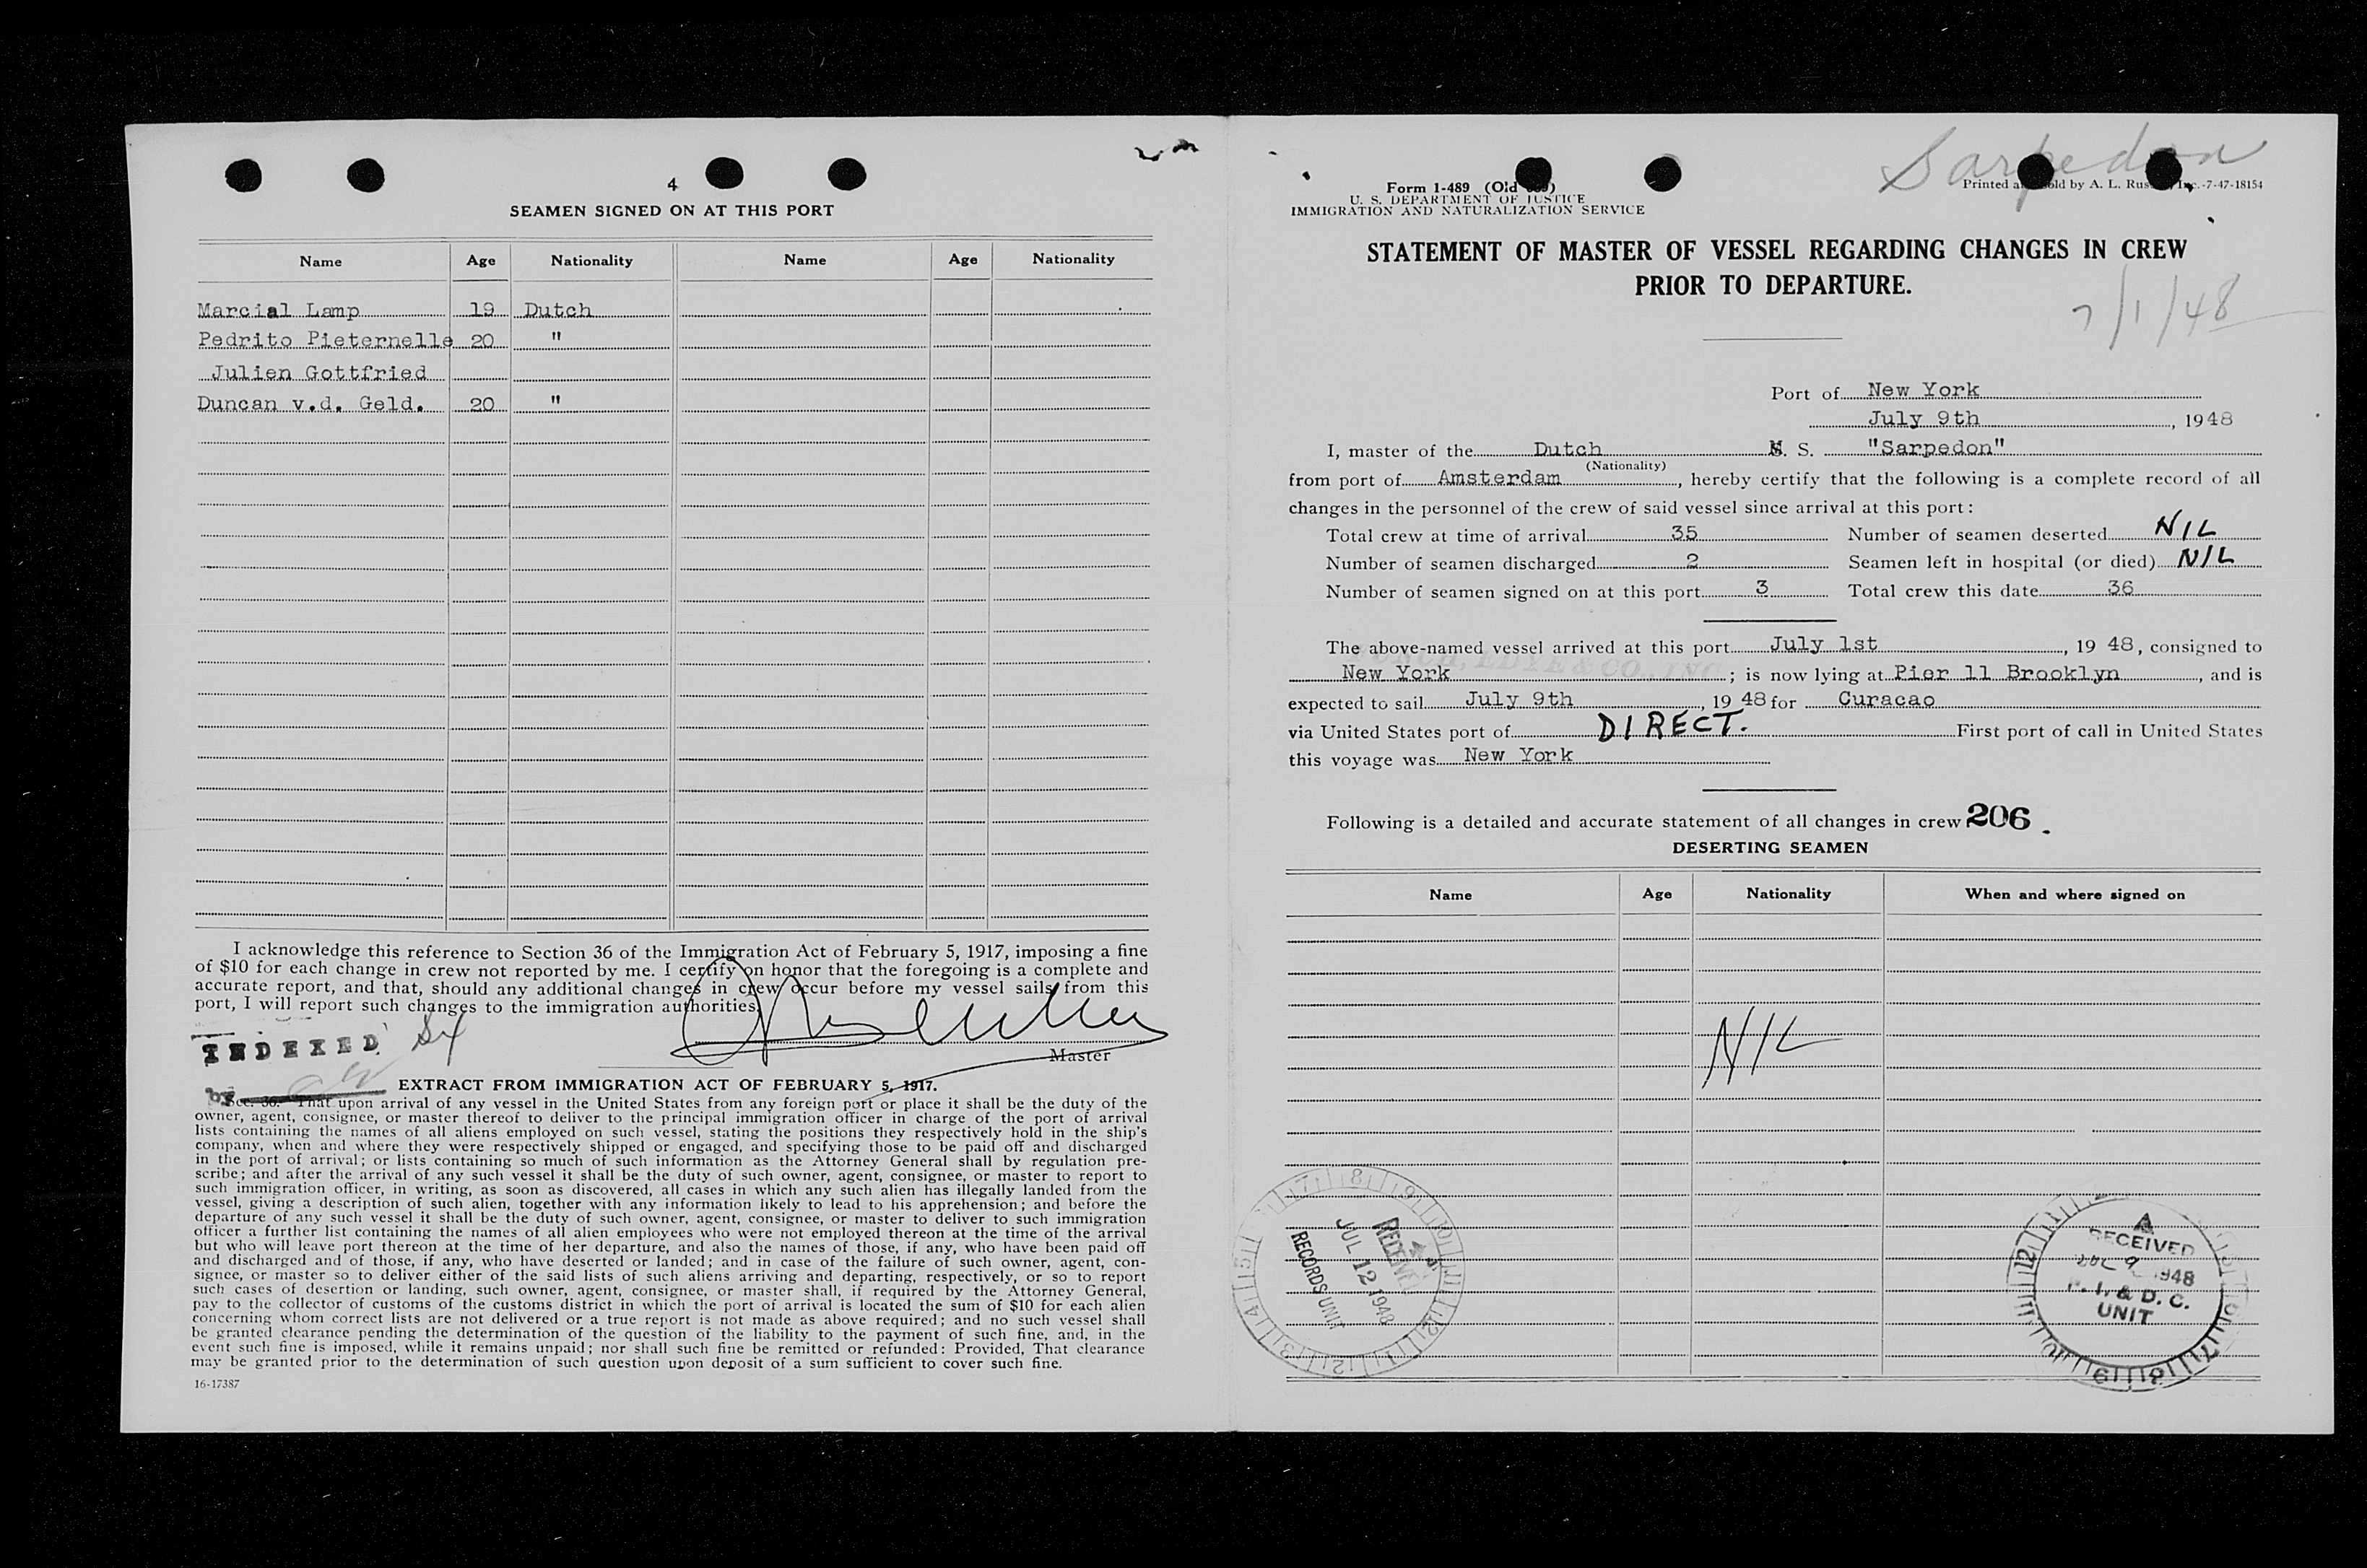 4
SEAMEN SIGNED ON AT THIS PORT
Name Age Nationality Name Age Nationality
Marcial Lamp 19 Dutch
Pedrito Pieternelle 20 "
Julien Gottfried
Duncan v.d. Geld. 20 "
I acknowledge this reference to Section 36 of the Immigration Act of February 5, 1917, imposing a fine
of $10 for each change in crew not reported by me. I certify on honor that the foregoing is a complete and
accurate report, and that, should any additional changes in crew occur before my vessel sails from this
port, I will report such changes to the immigration authorities.
INDEXED
Master
by
EXTRACT FROM IMMIGRATION ACT OF FEBRUARY 5, 1917.
Sec. 36. That upon arrival of any vessel in the United States from any foreign port or place it shall be the duty of the
owner, agent, consignee, or master thereof to deliver to the principal immigration officer in charge of the port of arrival
lists containing the names of all aliens employed on such vessel, stating the positions they respectively hold in the ship's
company, when and where they were respectively shipped or engaged, and specifying those to be paid off and discharged
in the port of arrival; or lists containing so much of such information as the Attorney General shall by regulation pre-
scribe; and after the arrival of any such vessel it shall be the duty of such owner, agent, consignee, or master to report to
such immigration officer, in writing, as soon as discovered, all cases in which any such alien has illegally landed from the
vessel, giving a description of such alien, together with any information likely to lead to his apprehension; and before the
departure of any such vessel it shall be the duty of such owner, agent, consignee, or master to deliver to such immigration
officer a further list containing the names of all alien employees who were not employed thereon at the time of the arrival
but who will leave port thereon at the time of her departure, and also the names of those, if any, who have been paid off
and discharged and of those, if any, who have deserted or landed; and in case of the failure of such owner, agent, con-
signee, or master so to deliver either of the said lists of such aliens arriving and departing, respectively, or so to report
such cases of desertion or landing, such owner, agent, consignee, or master shall, if required by the Attorney General,
pay to the collector of customs of the customs district in which the port of arrival is located the sum of $10 for each alien
concerning whom correct lists are not delivered or a true report is not made as above required; and no such vessel shall
be granted clearance pending the determination of the question of the liability to the payment of such fine, and, in the
event such fine is imposed, while it remains unpaid; nor shall such fine be remitted or refunded: Provided, That clearance
may be granted prior to the determination of such question upon deposit of a sum sufficient to cover such fine.
16-17387
Sarpedon
Form 1-489 (Old
Printed sold by A. L. Inc.-7-47-18154
U. S. DEPARTMENT OF JUSTICE
IMMIGRATION AND NATURALIZATION SERVICE
STATEMENT OF MASTER OF VESSEL REGARDING CHANGES IN CREW
PRIOR TO DEPARTURE.
7/1/48
Port of New York
July 9th, 1948
I, master of the Dutch M. S. "Sarpedon"
(Nationality)
from port of Amsterdam, hereby certify that the following is a complete record of all
changes in the personnel of the crew of said vessel since arrival at this port:
Total crew at time of arrival 35 Number of seamen deserted NIL
Number of seamen discharged 2 Seamen left in hospital (or died) NIL
Number of seamen signed on at this port 3 Total crew this date 36
The above-named vessel arrived at this port July 1st, 19 48, consigned to
New York; is now lying at Pier 11 Brooklyn, and is
expected to sail July 9th, 19 48 for Curacao
via United States port of DIRECT. First port of call in United States
this voyage was New York
Following is a detailed and accurate statement of all changes in crew 206.
DESERTING SEAMEN
Name Age Nationality When and where signed on
NIL
RECEIVED
JUL 12 1948
RECORDS UNIT
RECEIVED
JUL 9 1948
UNIT